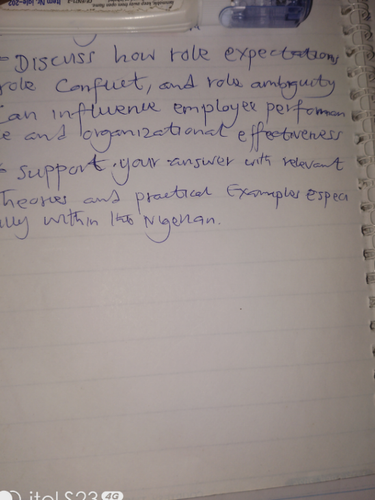 - Discuss how role expectations
role Conflict, and role ambiguity
can influence employee performan
e and organizational effectiveness
support your answer with relevant
Theories and practical Examples especi
ally within the Nigerian.
itel S23 4G